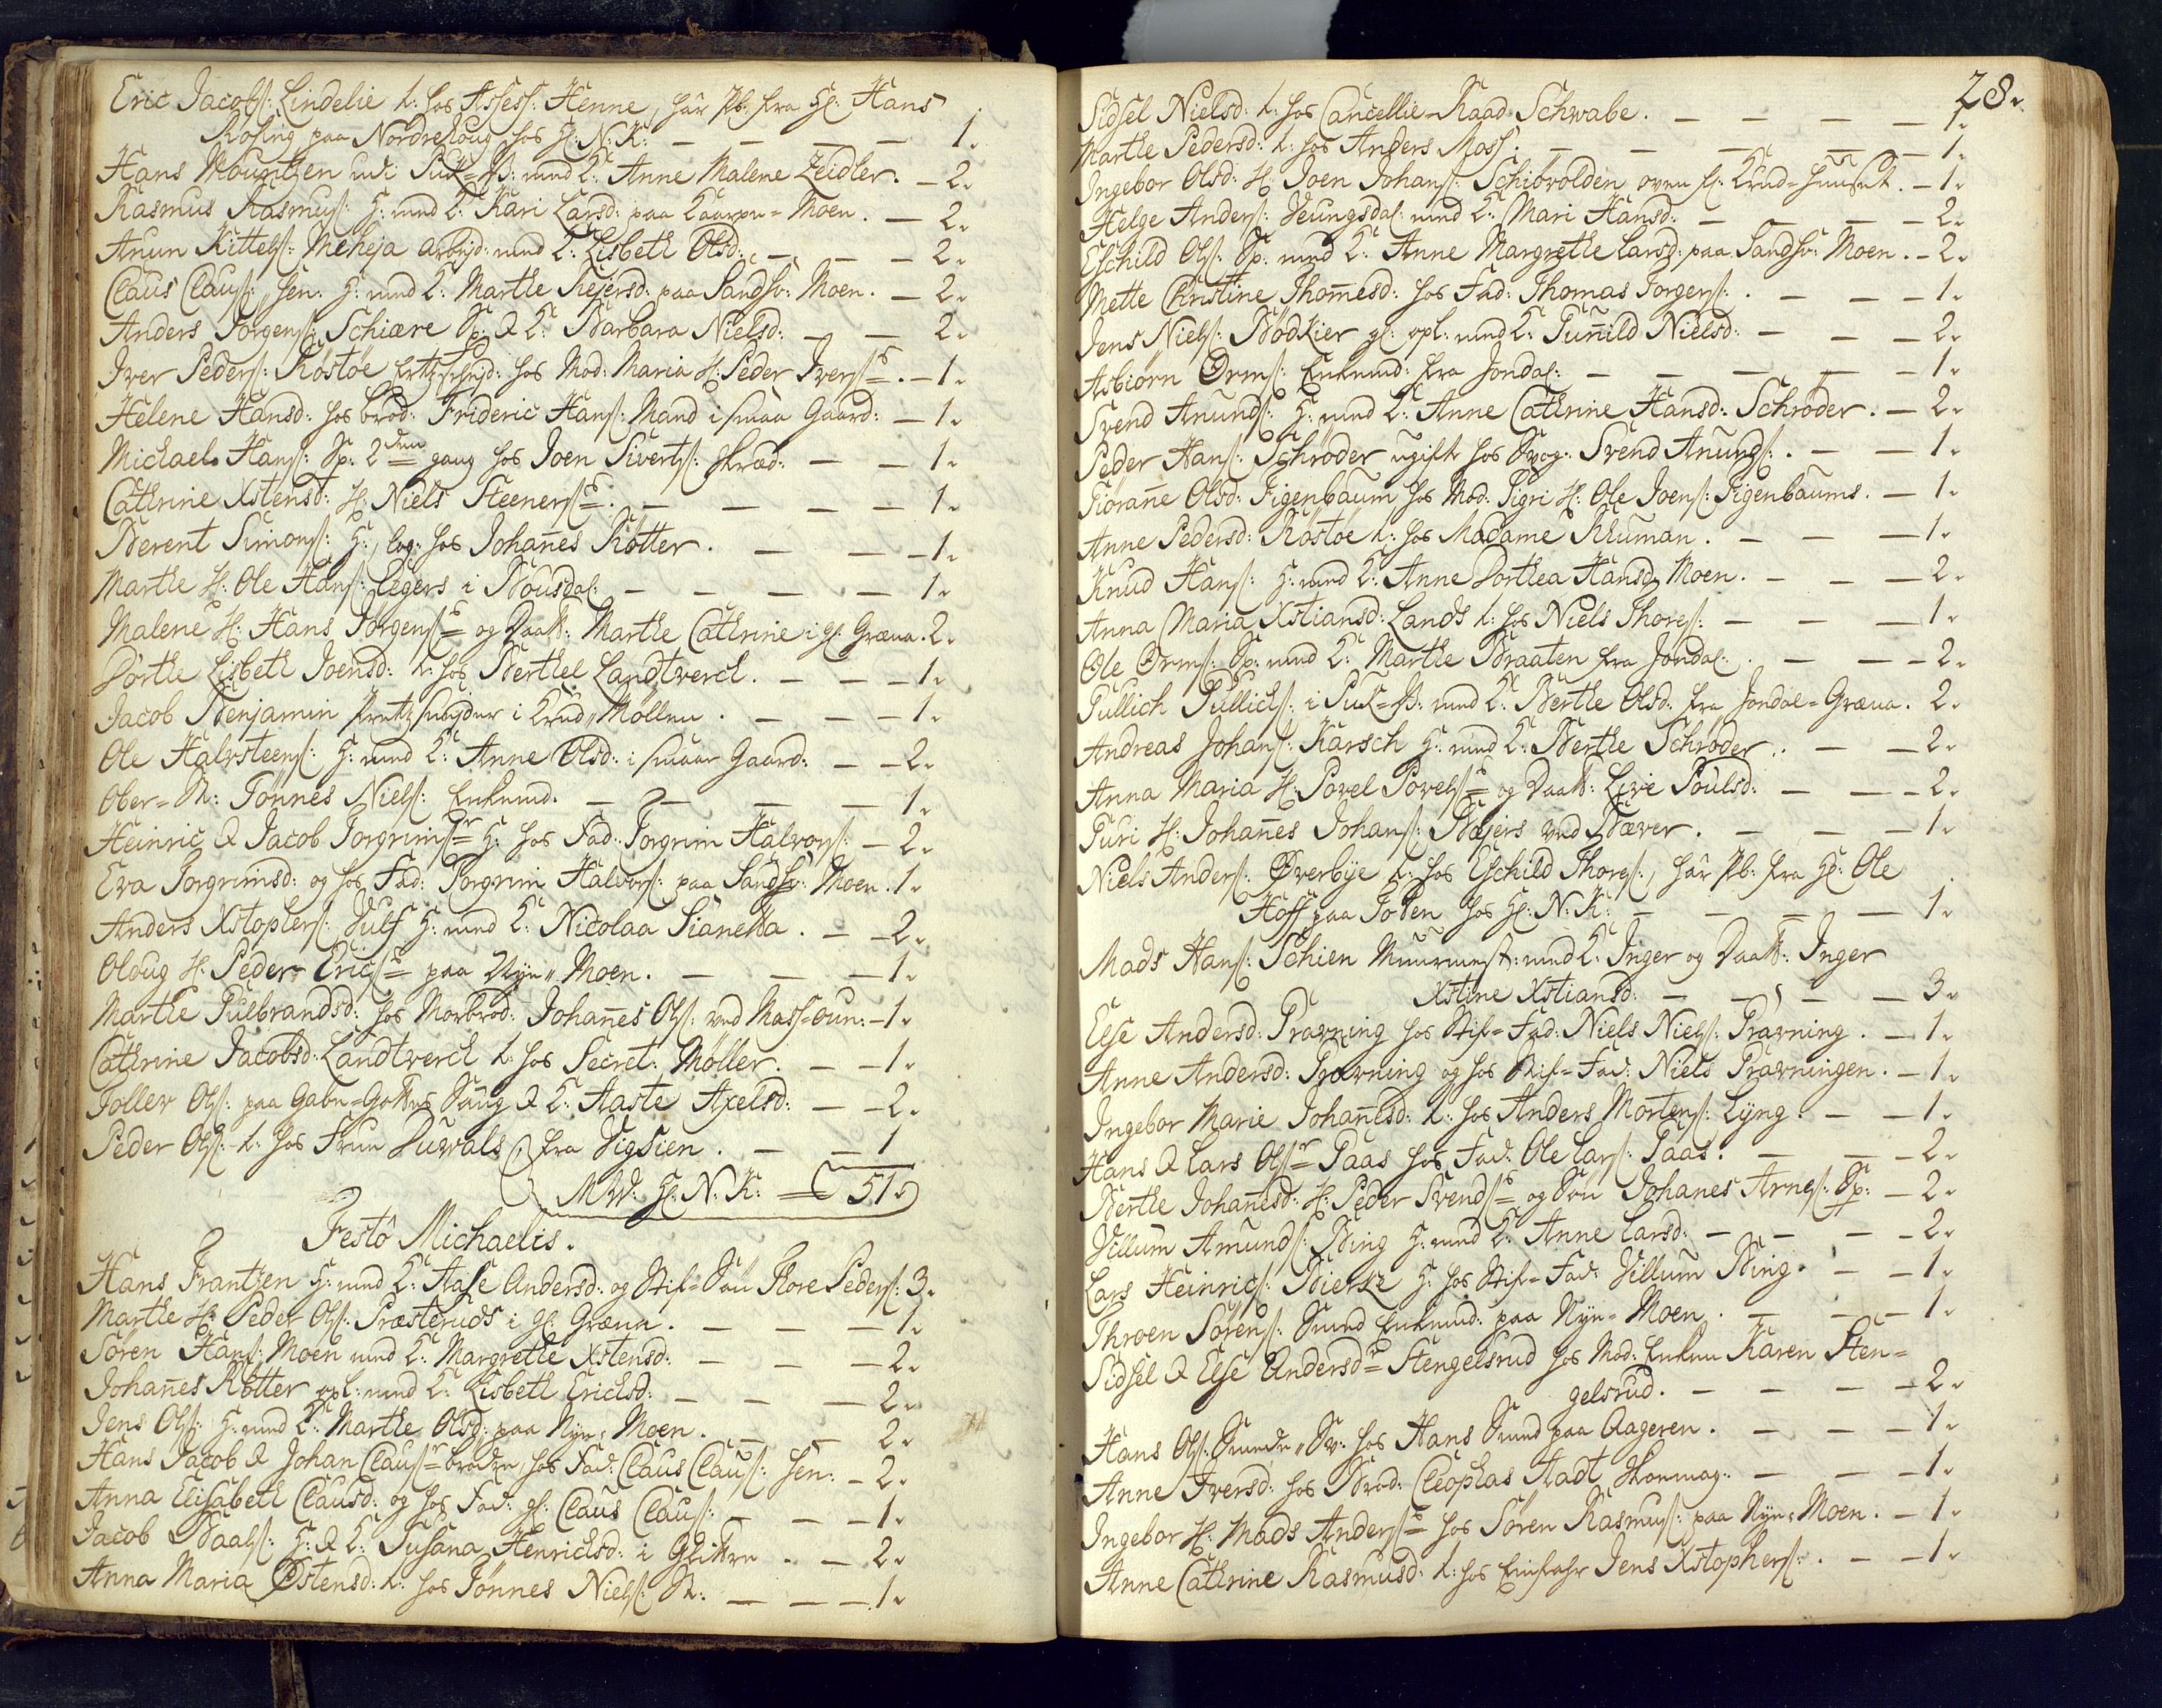 Eric Jacobs: Lindelie l: hos Assess: Henne, hâr Pb: fra H: Hans
Rosing paa Nordrehoug hos H: N: K: — — — — 1.
Hans Mountzen udi Suk=B: med K: Anne Malene Zeidler. — 2.
Rasmus Rasmus: H: med K: Kari Larsd: paa Moen. — 2.
Anun Kittels: Meheja arbejd: med K: Lisbeth Olsd: — — — 2.
Claus Claus: Sen: H: med K: Marthe Rejersd: paa Sandsv: Moen. — 2.
Anders Jörgens: Schiære Sp: & K: Barbara Nielsd: — — 2.
Iver Peders: Röstöe hos Mod: Maria H: Peder Ivers: — 1.
Helene Hansd: hos Brod: Frideric Hans: Mand i smaa Gaard: — 1.
Michael Hans: Sp: 2den gang hos Joen Siverts: Skræd: — — 1.
Cathrine Xstensd: H: Niels Steeners: — — — — 1.
Berent Simons: H:, log: hos Johañes Rötter. — — — 1.
Marthe H: Ole Hans: Legers i Bousdal: — — — — 1.
Malene H: Hans Jörgens: og Daatt: Marthe Cathrine i gl: Græna. 2.
Dorthe Lisbeth Joensd: l: hos Berthel Landtverch. — — — 1.
Jacob Benjamin i Krud Möllen. — — — 1.
Ole Halvsteens: H: med K: Anne Olsd: i smaae Gaard: — — 2.
Ober=St: Tönnes Niels: Enkemd. — — — — 1.
Heinric & Jacob Torgrims: H: hos Fad: Torgrim Halvors: — 2.
Eva Torgrimsd: og hos Fad: Torgrim Halvors: paa Sandsv: Moen. 1.
Anders Xstophers: Vulf H: med K: Nicolaa Sianetta. — — 2.
Oloug H: Peder Erics: paa Nye Moen. — — — 1.
Marthe Gulbrandsd: hos Morbrod: Johañes Ols: ved Mass=oun: — 1.
Cathrine Jacobsd: Landtverch l: hos Secret: Möller. — — 1.
Toller Ols: paa Gabe=Gottes & K: Aaste Axelsd: — — 2.
Peder Ols: l: hos Frue Duvals, fra Vigsien. — — 1
M W: H: N: K: = 51.
Festô Michaelis.
Hans Frantzen H: med K: Aase Andersd: og Stif=Sön Thore Peders: 3.
Marthe H: Peder Ols: Præsteruds i gl: Græna. — — — 1.
Sören Hans: Moen med K: Margrethe Xstensd: — — — 2.
Johañes Rötter opl: med K: Lisbeth Erichsd: — — — 2.
Jens Ols: H: med K: Marthe Olsd: paa Nye Moen. — — 2.
Hans Jacob & Johan Claus: brödre, hos Fad: Claus Claus: Sen: — 2.
Anna Elisabeth Clausd: og hos Fad: gl: Claus Claus: — — — 1.
Jacob Baals: H: & K: Susana Henrichsd: i Glitre . — 2.
Anna Maria Östensd: l: hos Tönnes Niels: St: — — — 1.
28.
Sidsel Nielsd: l: hos Cancellie=Raad Schwabe. — — — — 1.
Marthe Pedersd: l: hos Anders Moss: — — — — 1.
Ingebor Olsd: H: Joen Johans: Schiövolden oven f: Krud=huuset. — 1.
Helge Anders: Veungsdal: med K: Mari Hansd: — — — 2.
Eschild Ols: Sp: med K: Anne Margrethe Larsd: paa Sandsv: Moen. — 2.
Mette Christine Thomesd: hos Fad: Thomas Jörgens: — — — 1.
Jens Niels: Bödkier gl: opl: med K: Guñild Nielsd: — — — 2.
Asbiörn Orms: Enkemd: fra Jondal: — — — — — 1.
Svend Anunds: H: med K: Anne Cathrine Hansd: Schröder. — 2.
Peder Hans: Schröder ugift hos Svog: Svend Anunds: — — 1.
Giörañe Olsd: Figenbaum hos Mod: Sigri H: Ole Joens: Figenbaums. — 1.
Anne Pedersd: Röstöe l: hos Madame Schuman. — — — 1.
Knud Hans: H: med K: Anne Dorthea Hansd: Moen. — — — 2.
Anna Maria Xstiansd: Lands l: hos Niels Thores: — — — 1.
Ole Orms: Sp: med K: Marthe Braaten fra Jondal: — — — 2.
Gullich Gullichs: i Suk=B: med K: Berthe Olsd: fra Jondal=Græna. 2.
Andreas Johans: Karsch H: med K: Berthe Schröder. — — 2.
Anna Maria H: Povel Povels: og Daatt: Live Poulsd: — — — 2.
Guri H: Johañes Johans: Bøjers ved Bæver. — — — — 1.
Niels Anders: Överbye l: hos Eschild Thores:, hâr Pb: fra H: Ole
Hoff paa Toten hos H: N: K: — — — — 1.
Mads Hans: Schien Muurmest: med K: Inger og Daatt: Inger
Xstine Xstiansd: — — — — 3.
Else Andersd: Pravning hos Stif=Fad: Niels Niels: Pravning. — 1.
Anne Andersd: Pravning og hos Stif=Fad: Niels Pravningen. — 1.
Ingebor Marie Johañesd: l: hos Anders Mortens: Lyng. — — 1.
Hans & Lars Ols: Paas hos Fad: Ole Lars: Paas. — — — 2.
Berthe Johañesd: H: Peder Svends: og Sön Johanes Arnes: Sp: — 2.
Villum Amunds: Bing H: med K: Anne Larsd: — — — 2.
Lars Heinrics: Bierke H: hos Stif=Fad: Villum Bing. — — 1.
Throen Sörens: Smed Enkemd: paa Nye Moen. — — — 1.
Sidsel & Else Andersd: Stengelsrud hos Mod: Enken Karen Sten=
gelsrud. — — — — 2.
Hans Ols: hos Hans Smed paa Aageren. — — — 1.
Anne Iversd: hos Brod: Cleophas Aadt Skomag: — — — 1.
Ingebor H: Mads Anders: hos Sören Rasmus: paa Nye Moen. — 1.
Anne Cathrine Rasmusd: l: hos Einfahr Jens Xstophers: — — 1.